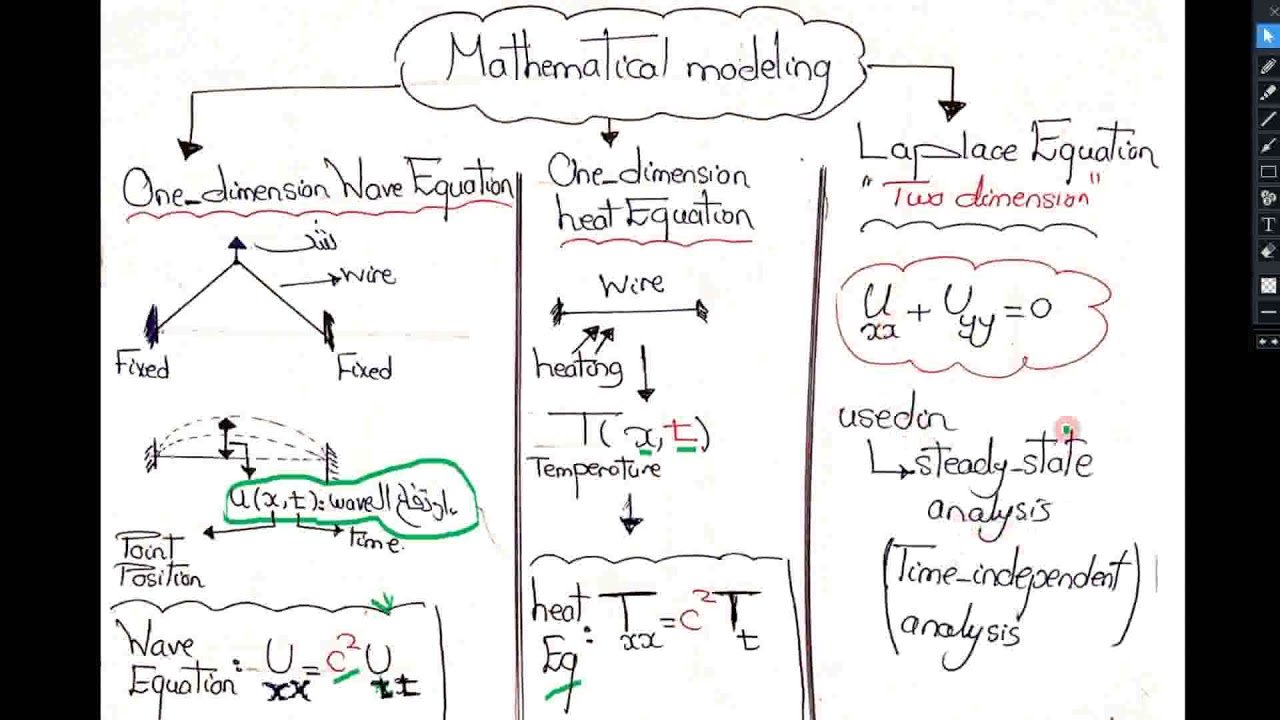 Mathematical modeling
One_dimension Wave Equation
شد
Wire
Fixed
Fixed
u(x,t): wave ارتفاع ال
Point
Position
time.
Wave
Equation: U_xx = c² U_tt
One_dimension
heat Equation
Wire
heating
T(x,t)
Temperature
heat
Eq : T_xx = c² T_t
Laplace Equation
"Two dimension"
U_xx + U_yy = 0
used in
steady_state
analysis
(Time_independent
analysis)
T